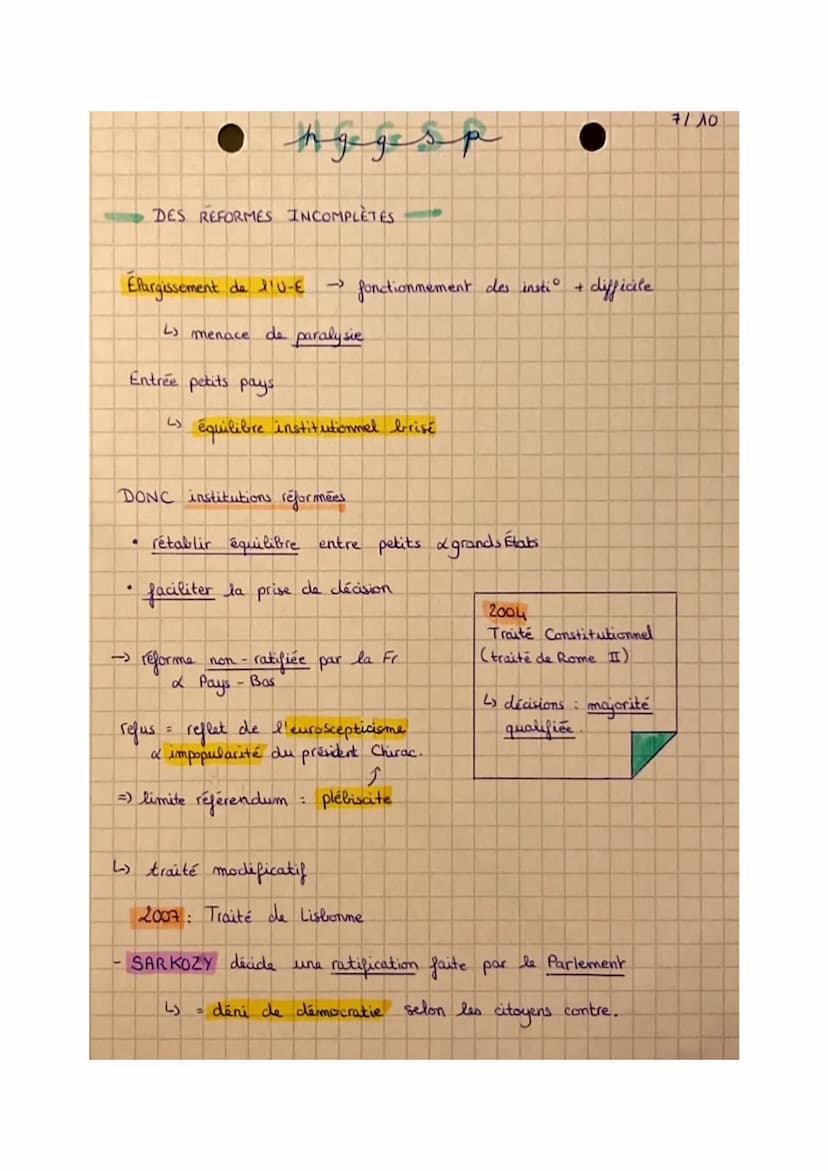 7/10
HGGSP
DES RÉFORMES INCOMPLÈTES
Élargissement de l'U-E → fonctionnement des insti° + difficile
↳ menace de paralysie
Entrée petits pays
↳ équilibre institutionnel brisé
DONC institutions réformées
• rétablir équilibre entre petits & grands États
• faciliter la prise de décision
→ réforme non-ratifiée par la Fr
& Pays-Bas
refus = reflet de l'euroscepticisme
& impopularité du président Chirac.
⇒ limite référendum : plébiscite
2004
Traité Constitutionnel
(traité de Rome II)
↳ décisions : majorité
qualifiée.
↳ traité modificatif
2007 : Traité de Lisbonne
- SARKOZY décide une ratification faite par le Parlement
↳ = déni de démocratie selon les citoyens contre.